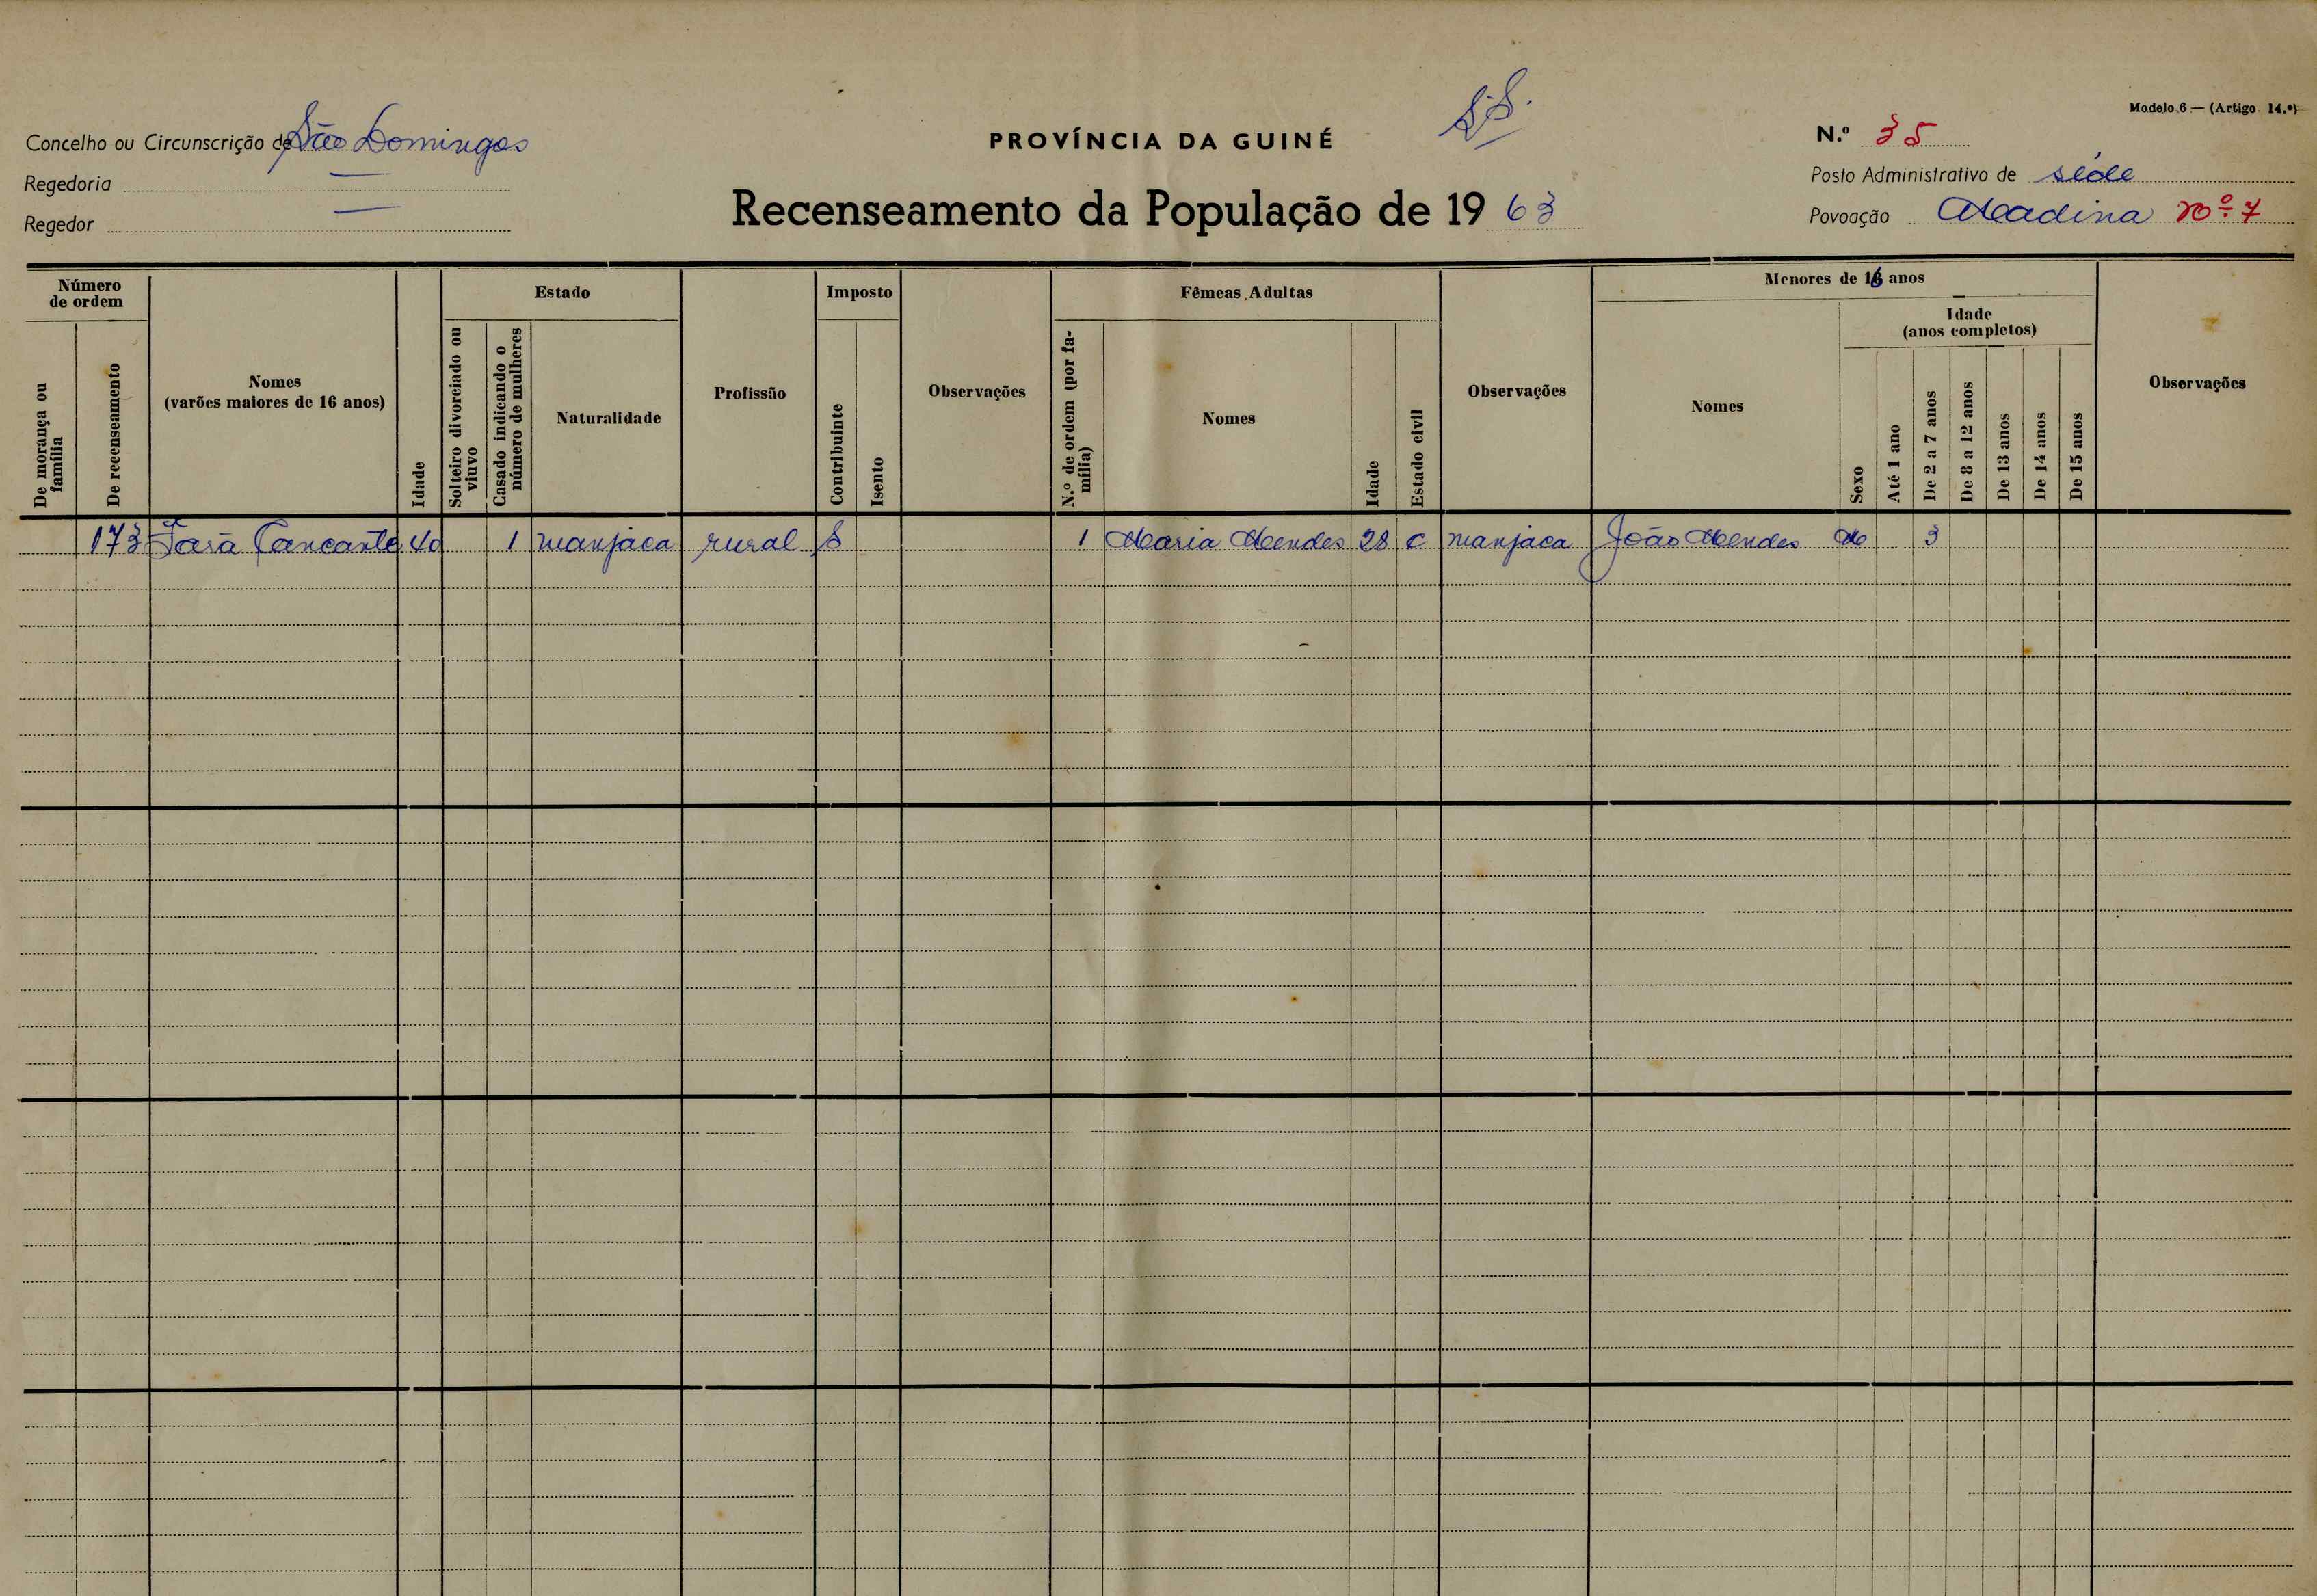 Modelo 6 — (Artigo 14.º)
Concelho ou Circunscrição de São Domingos
PROVÍNCIA DA GUINÉ
S.S.
N.º 35
Regedoria —
Posto Administrativo de séde
Regedor —
Recenseamento da População de 19 63
Povoação Madina nº 7
Número de ordem
Estado
Imposto
Fêmeas Adultas
Menores de 16 anos
Idade (anos completos)
De morança ou família
De recenseamento
Nomes (varões maiores de 16 anos)
Idade
Solteiro divorciado ou viuvo
Casado indicando o número de mulheres
Naturalidade
Profissão
Contribuinte
Isento
Observações
N.º de ordem (por família)
Nomes
Idade
Estado civil
Observações
Nomes
Sexo
Até 1 ano
De 2 a 7 anos
De 8 a 12 anos
De 13 anos
De 14 anos
De 15 anos
Observações
173 Cancante 40 1 manjaca rural S 1 Maria Mendes 28 C manjaca João Mendes M 3